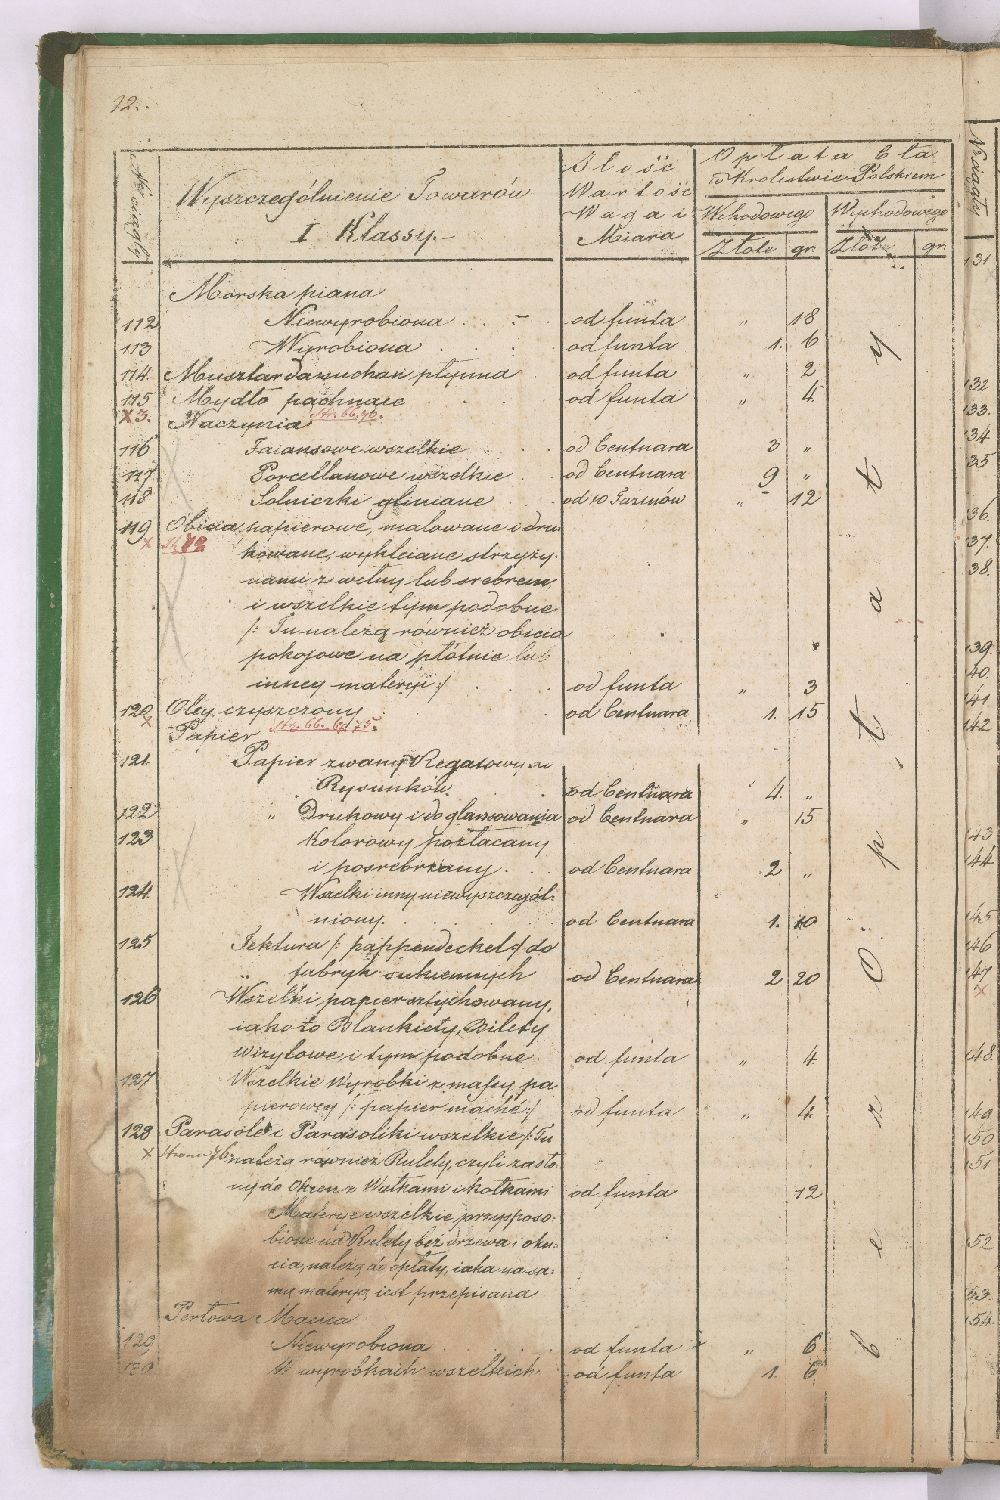 12.
No ciągły
Wyszczególnienie Towarów
I Klassy.
Ilość
Wartość
Waga i
Miara
Opłata Cła
w Krolestwie Polskiem
Wchodowego Wychodowego
Złote gr. Złote gr.
bez opłaty
Morska piana
112 Niewyrobiona . . . od funta " 18
113 Wyrobiona . . . od funta 1. 6
114. Musztarda suchar płynna . od funta " 2
115 Mydło pachnące . . od funta " 4
X 3. Naczynia Str. 66.
116 Faiansowe wszelkie . . od Centnara 3 "
117 Porcellanowe wszelkie . od Centnara 9 "
118 Solniczki gliniane . od 10 Tuzinów " 12
119 Obicia papierowe, malowane i dru
x
kowane, wykleiane strzyży
nami z wełny lub srebrem
i wszelkie tym podobne
/: Tu należą również obicia
pokojowe na płótnie lub
inney materyi :/ . . od funta " 3
120 Oley czyszczony . od Centnara 1. 15
x Papier Str. 66.
121 Papier zwany Regałowy
Rysunków. od Centnara 4. "
122 " Drukowy i do glansowania od Centnara " 15
123 Kolorowy pozłacany
i posrebrzany. . od Centnara 2 "
124. Wszelki inny niewyszczegól-
niony. . . . od Centnara 1. 10
125 Tektura /: pappendeckel :/ do
fabryk sukiennych od Centnara 2 20
126 Wszelki papier sztychowany,
iako to Blankiety, Bilety
wizytowe, i tym podobne od funta " 4
127 Wszelkie Wyrobki z massy pa
pierowey /: papier maché :/ od funta " 4
128 Parasole i Parasoliki wszelkie /: Tu
x należą również Rulety, czyli zasło
ny do Okien z Wałkami i kółkami od funta 12
Materye wszelkie przysposo-
bione na Rulety bez drzewa i oku-
cia, należą do opłaty, iaka na sa-
mą materyą iest przepisana
Perłowa Macica
129 Niewyrobiona . . . od funta " 6
130 W wyrobkach wszelkich . od funta 1. 6
No ciągły
131
132
133.
134
135
136.
137.
138.
139
140.
141
142
143
144
145
146
147
x
148.
149
150
151
152
53.
154.